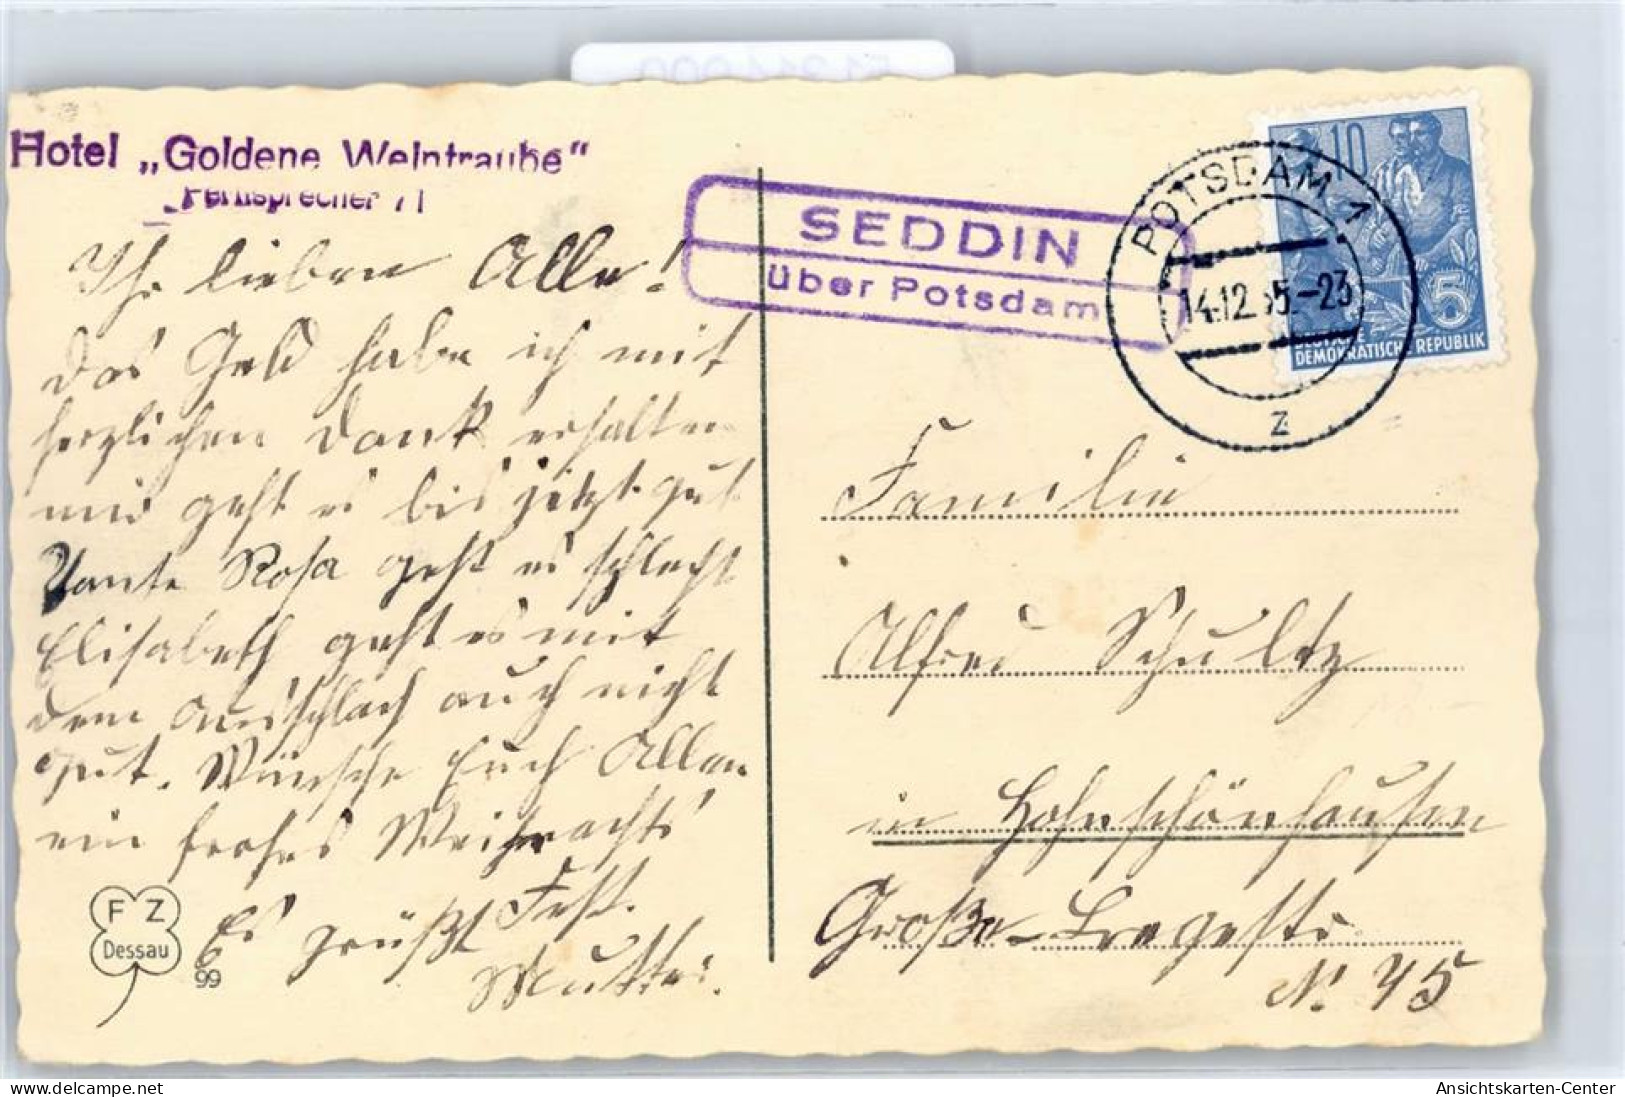 Hotel „Goldene Weintraube“
Fernsprecher 71
Ihr lieben Alle!
das Geld habe ich mit
herzlichen Dank erhalten
mir geht es bis jetzt gut
Tante Rosa geht es schlecht
Elisabeth geht es mit
dem Ausschlach auch nicht
gut. Wünsche Euch Allen
ein frohes Weihnachts
Fest.
Es grüßt
Mutter.
F Z
Dessau
99
SEDDIN
über Potsdam
POTSDAM 1
14.12.55.-23
z
10
5
DEUTSCHE
DEMOKRATISCHE REPUBLIK
Familie
Alfred Schultz
in Hohenschönhausen
Große-Leegestr
No 45
Ansichtskarten-Center